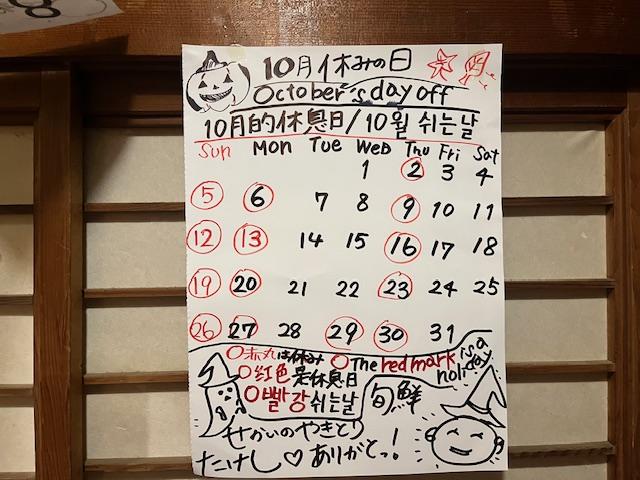 10月休みの日
October's day off
10月的休息日/10월 쉬는날
Sun Mon Tue Wed Thu Fri Sat
1 2 3 4
5 6 7 8 9 10 11
12 13 14 15 16 17 18
19 20 21 22 23 24 25
26 27 28 29 30 31
○赤丸は休み ○The red mark is a holiday
○红色是休息日
○빨강쉬는날
旬鮮
せかいのやきとり
たけし♡ありがとっ!